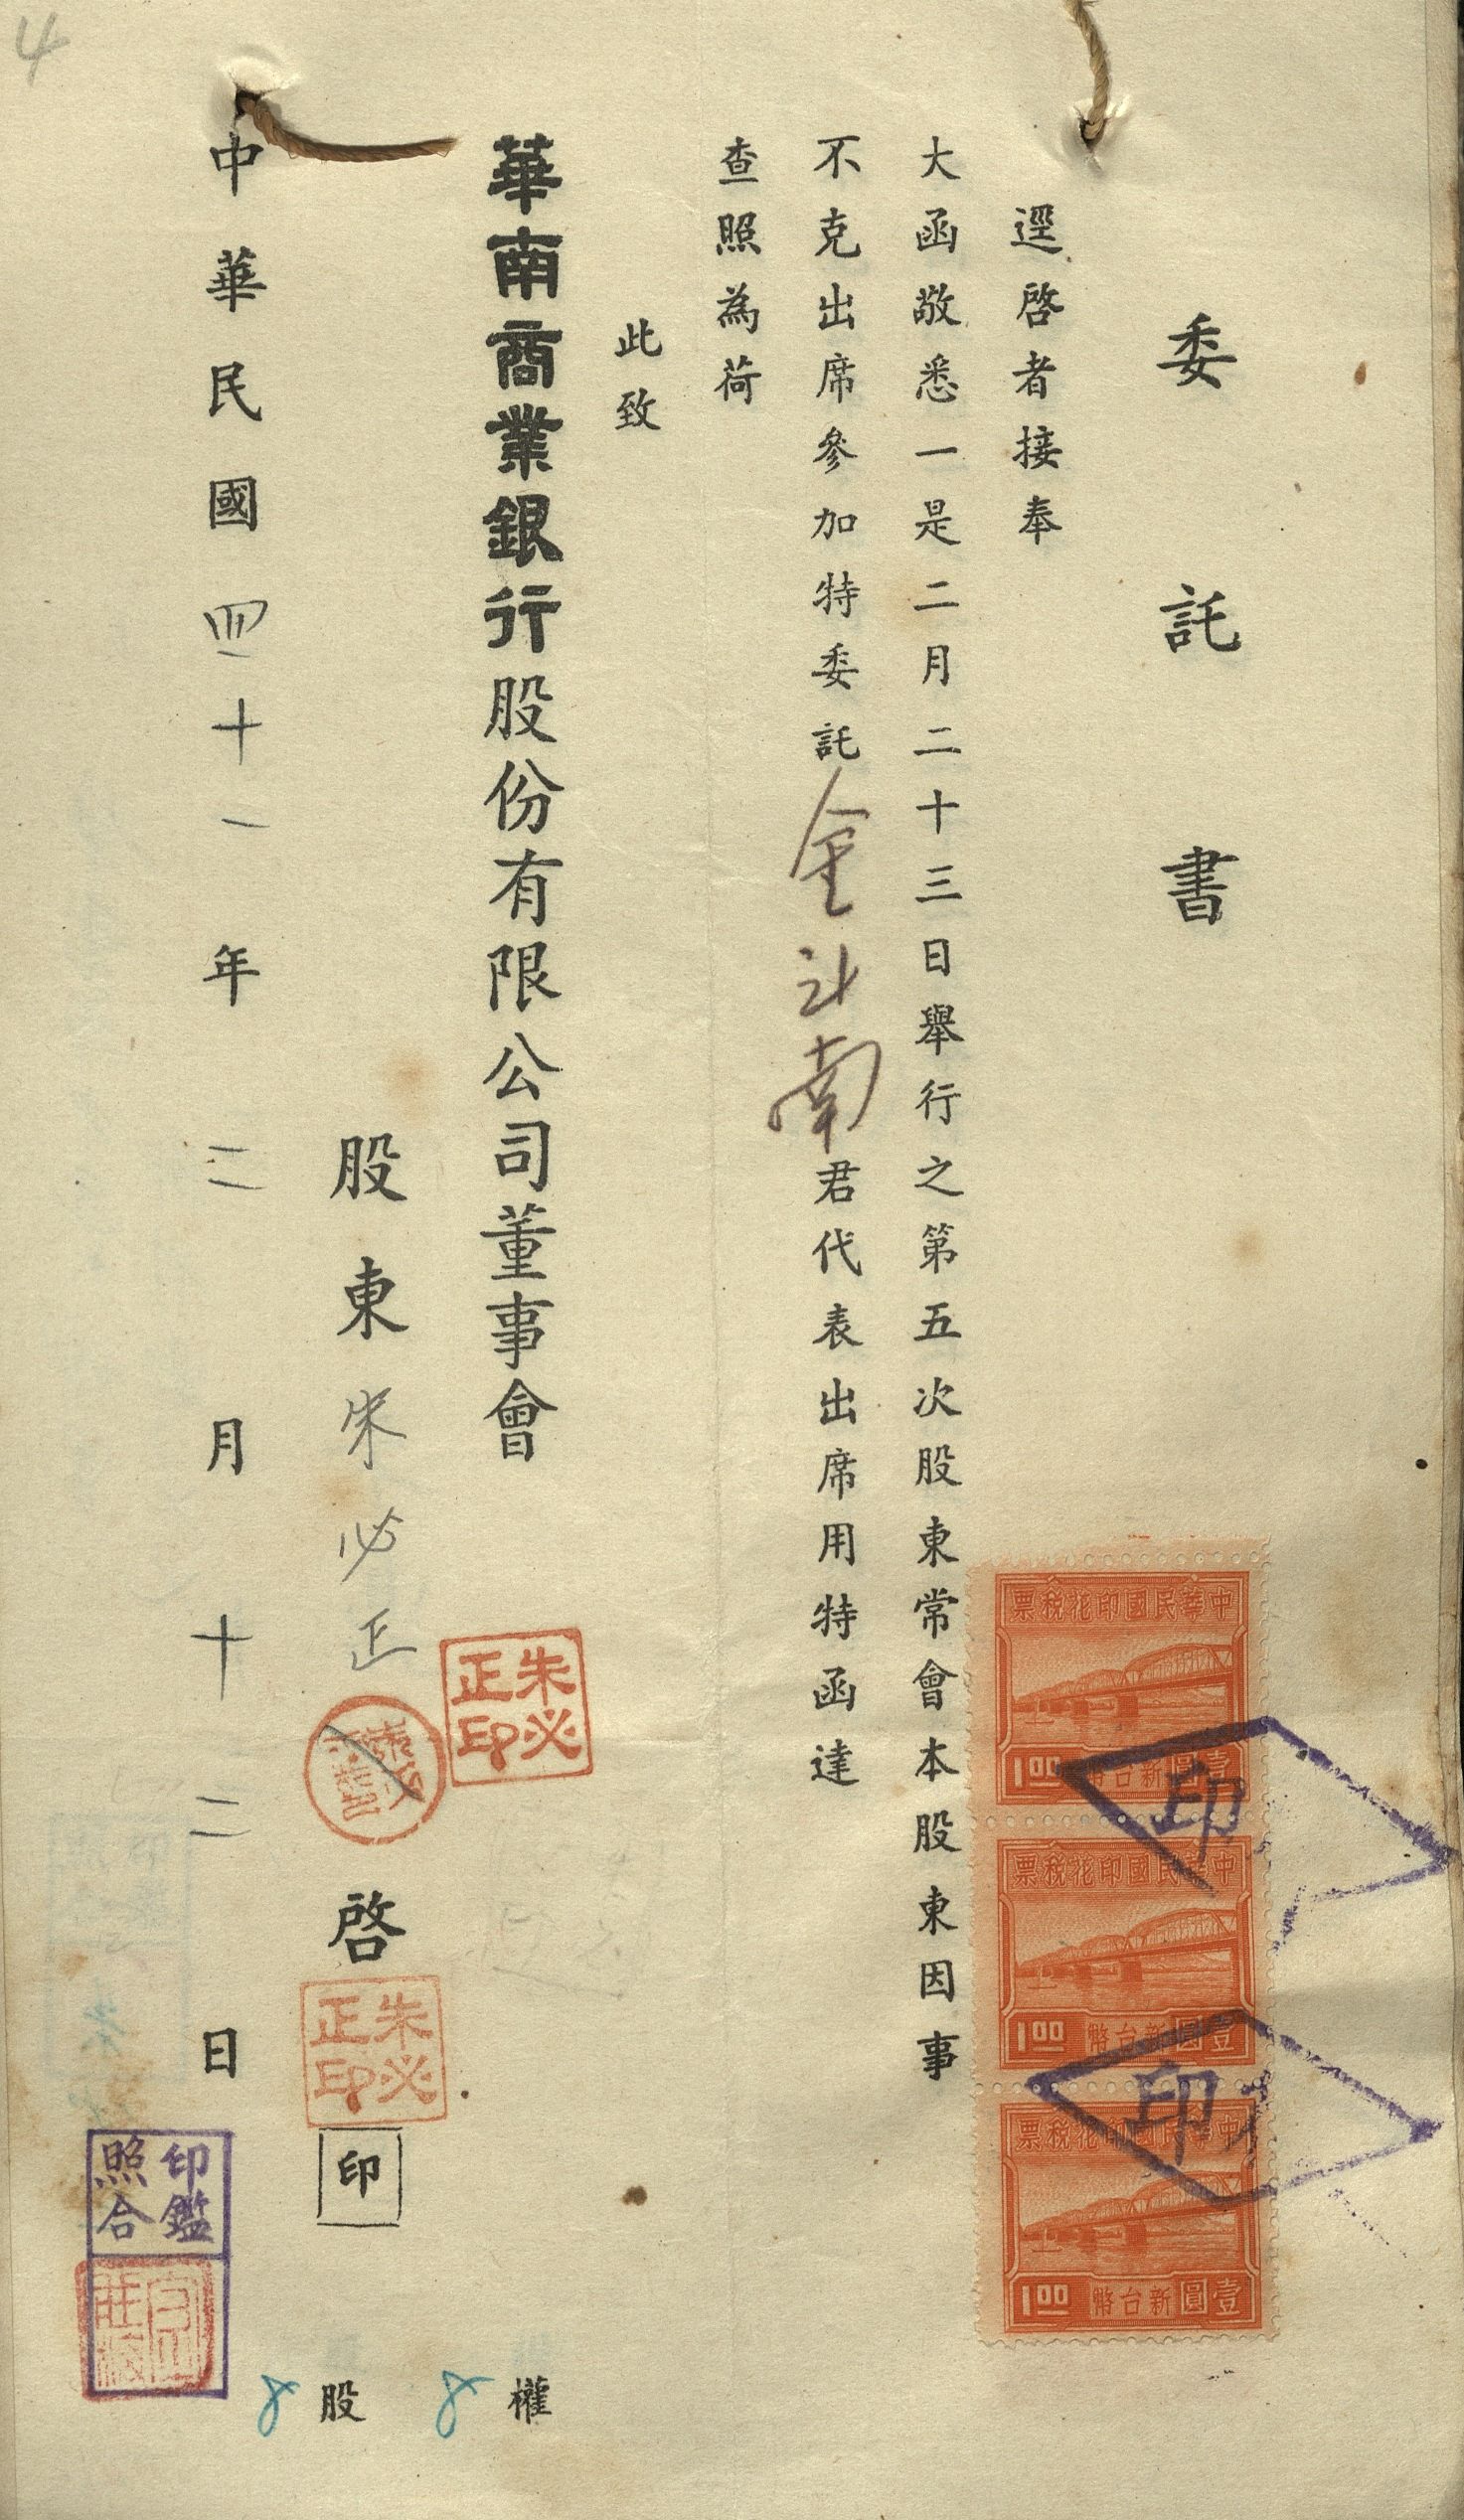 委託書
逕啓者接奉
大函敬悉一是二月二十三日舉行之第五次股東常會本股東因事
不克出席參加特委託金斗南君代表出席用特函達
查照為荷
此致
華南商業銀行股份有限公司董事會
股東朱必正啓印
朱必正印
朱必正印
中華民國四十一年二月十二日
中華民國印花稅票
壹圓新台幣
1.00
印
中華民國印花稅票
壹圓新台幣
1.00
印
中華民國印花稅票
壹圓新台幣
1.00
8權
8股
印鑑照合
4